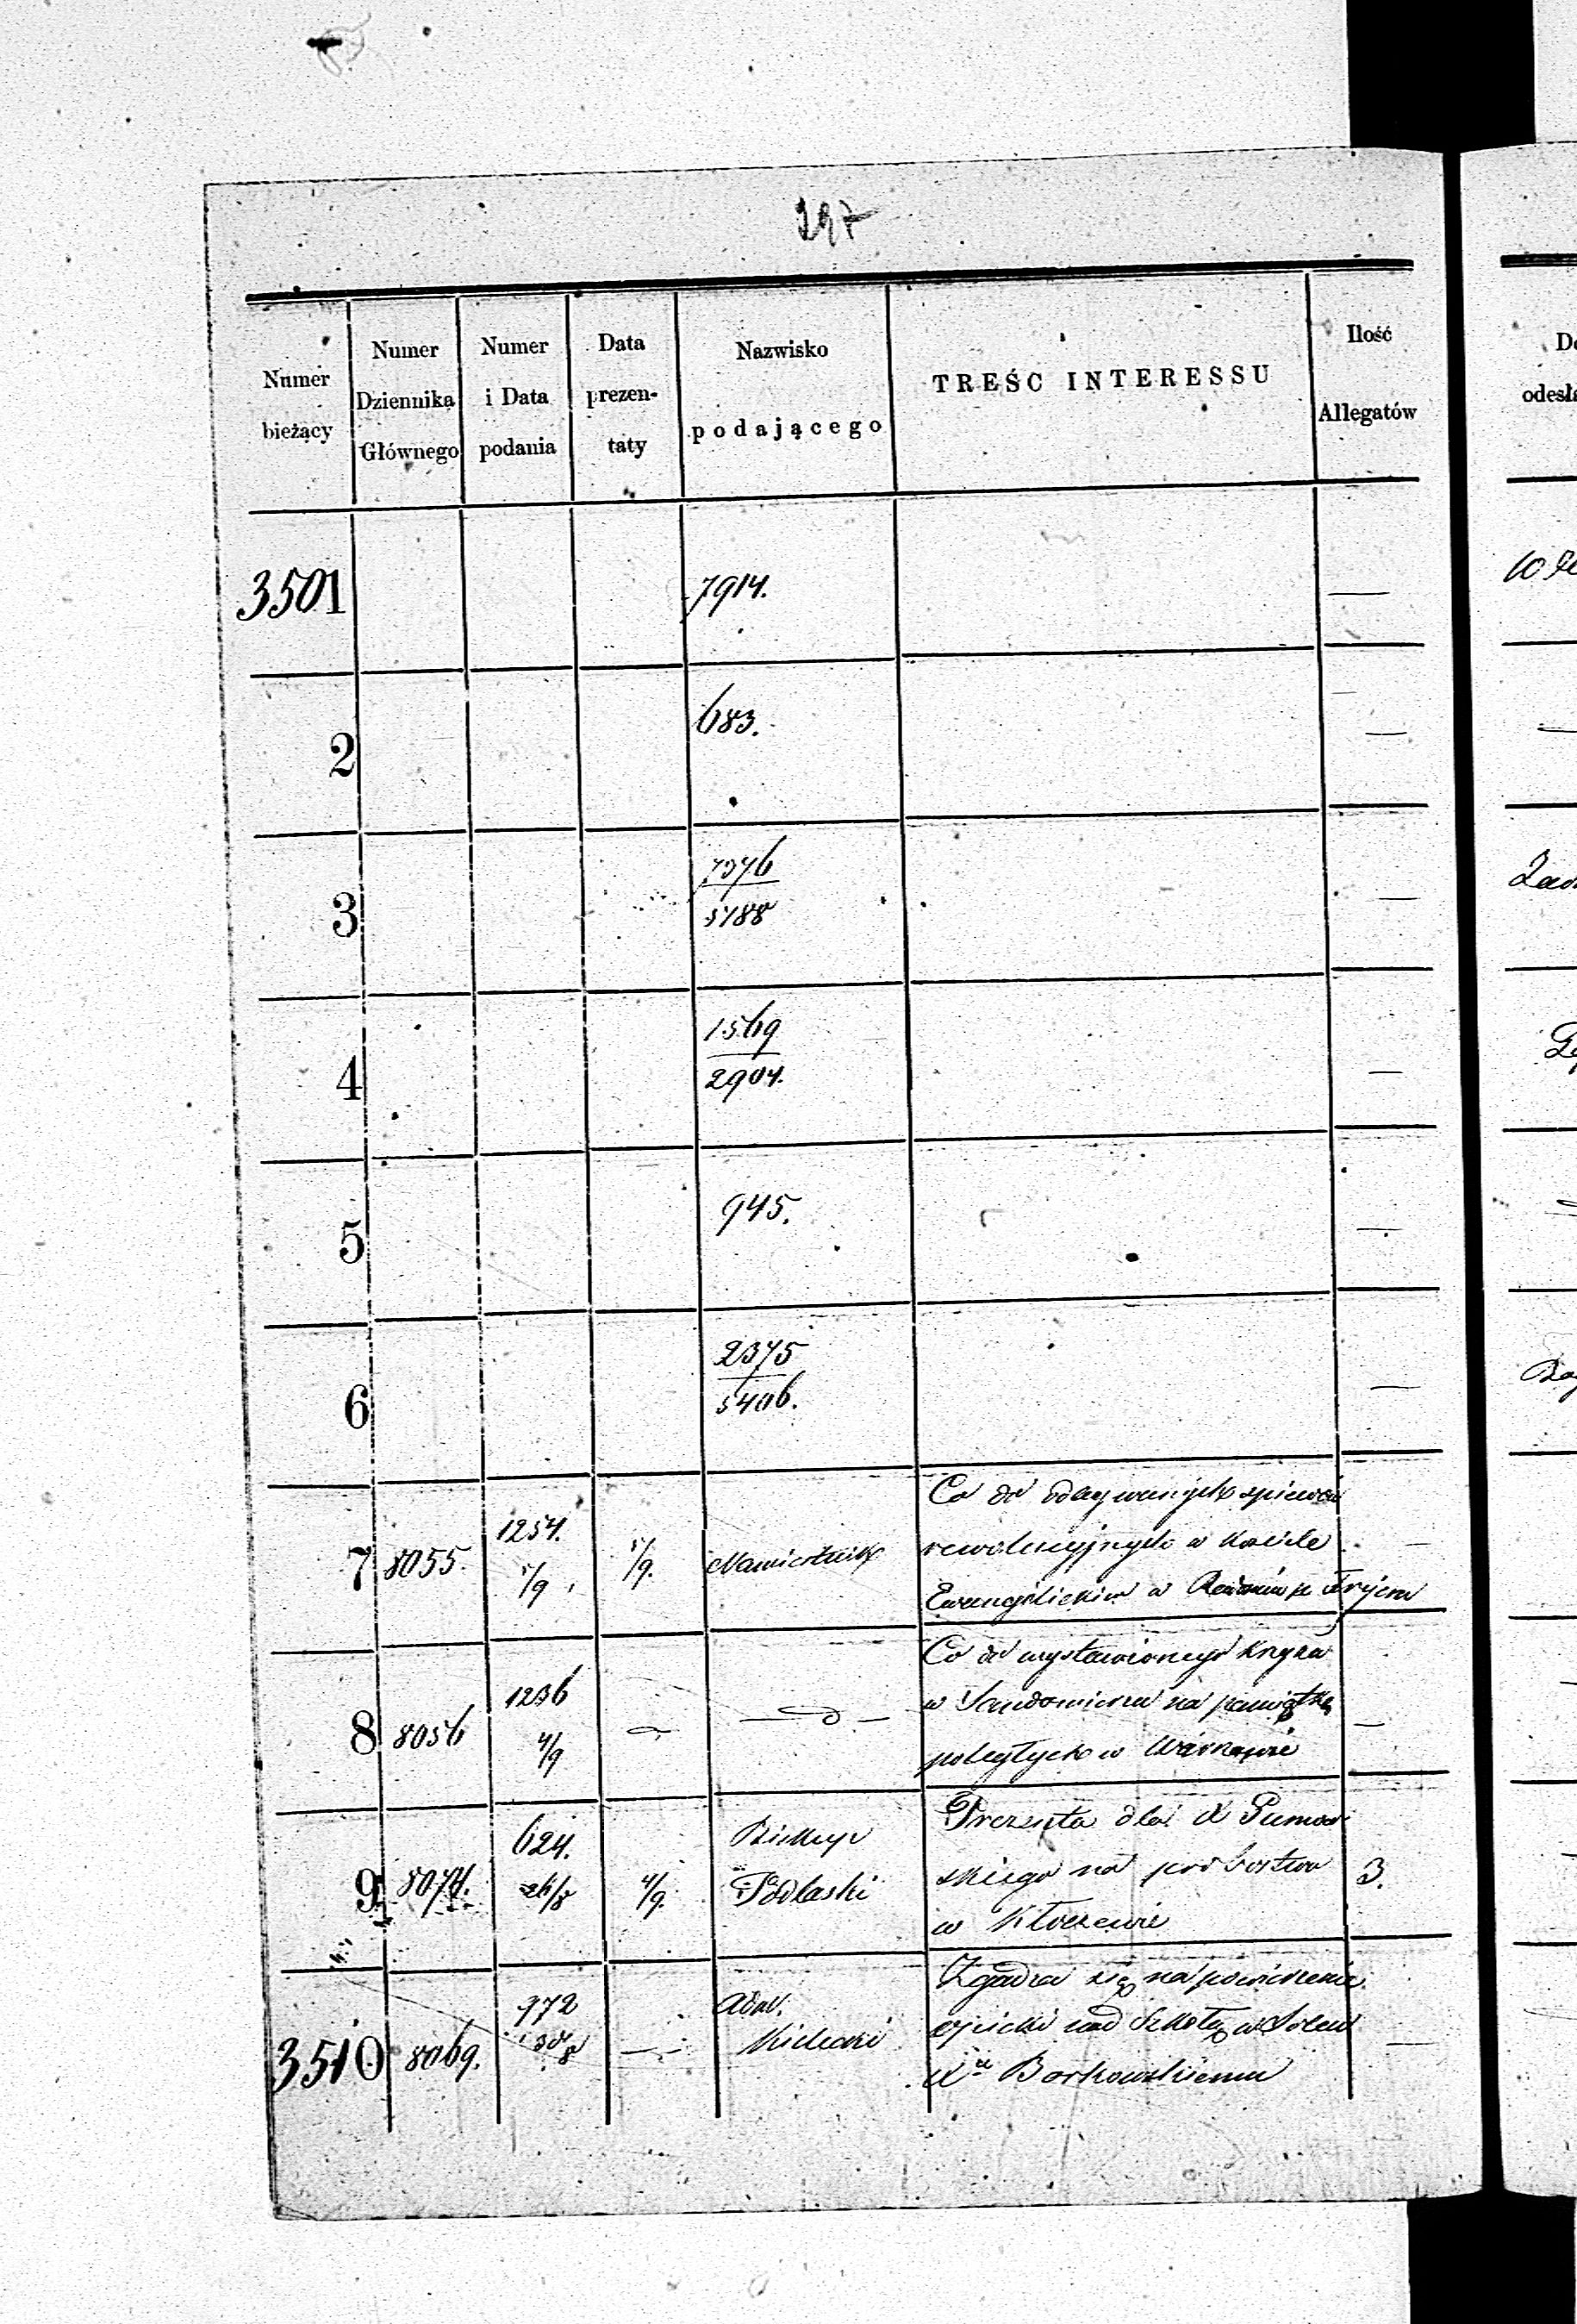 297
Numer bieżący
Numer Dziennika Głównego
Numer i Data podania
Data prezen- taty
Nazwisko podającego
TREŚC INTERESSU
Ilość Allegatów
3501
7914.
2
683.
3
7376
5788
4
1569
2904.
5
945.
6
2375
5406.
7
8055.
1254.
5/9
5/9.
Namiestnik
Co do odbywanych spiewów
rewolucyjnych w kościele
Ewangelickim w
8
8056
1236
4/9
Co do wystawionego krzyża
w Sandomierzu na pamiątkę
poległych w Warszawie
9
8074.
624.
26/8
4/9.
Biskup
Podlaski
Prezenta dla X
skiego na probostwo
w Kłoczewie
3.
3510
8069.
972
30/8
Adm.
Kielecki
Zgadza się na powierzenie
opieki nad Szkołą w Solcu
Xu Borkowskiemu
De
odesła
10